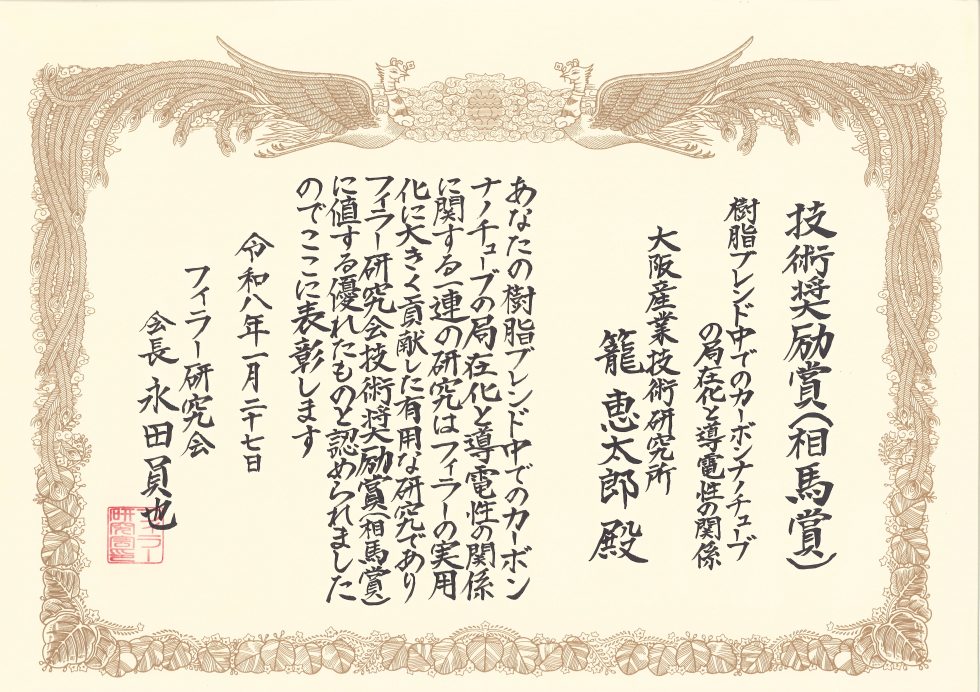 技術奨励賞(相馬賞)
樹脂ブレンド中でのカーボンナノチューブ
の局在化と導電性の関係
大阪産業技術研究所
籠恵太郎殿
あなたの樹脂ブレンド中でのカーボン
ナノチューブの局在化と導電性の関係
に関する一連の研究はフィラーの実用
化に大きく貢献した有用な研究であり
フィラー研究会技術奨励賞(相馬賞)
に値する優れたものと認められました
のでここに表彰します
令和八年一月二十七日
フィラー研究会
会長永田員也
フィラー
研究会印